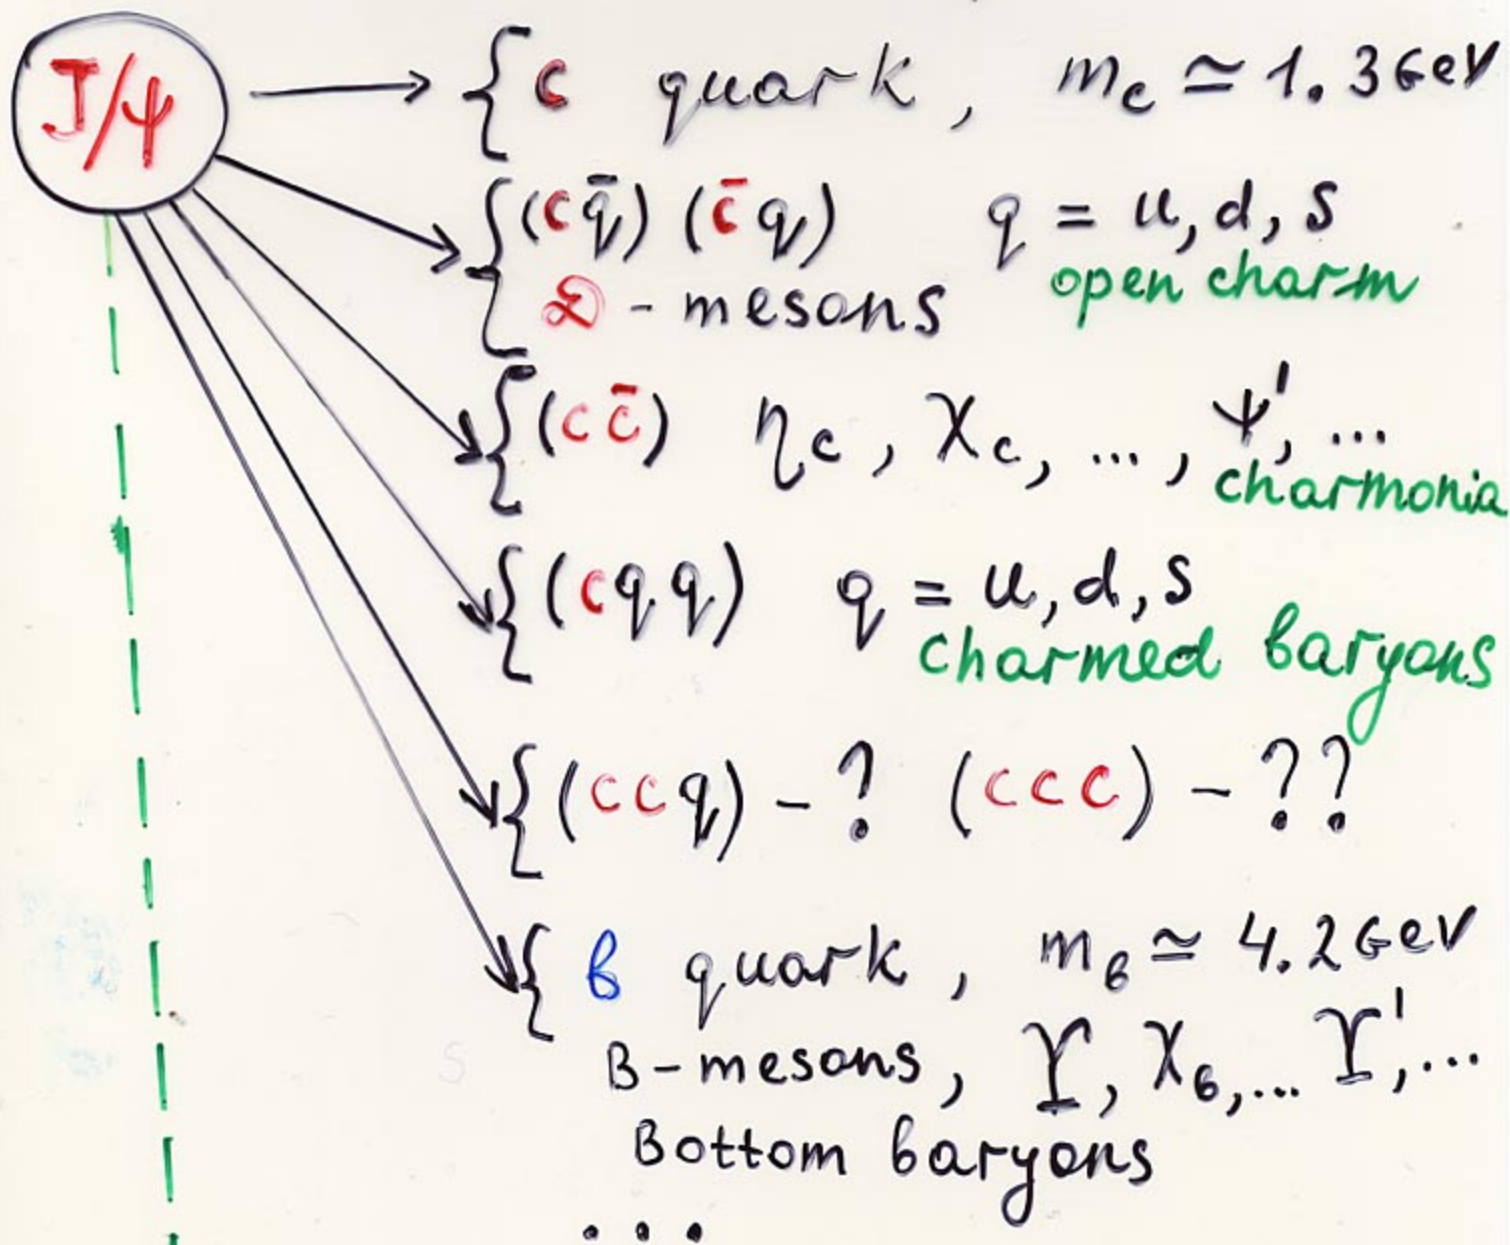 J/ψ
{ c quark, m_c ≃ 1.3 GeV
{ (c q̄) (c̄ q) q = u, d, s
D - mesons open charm
{ (c c̄) η_c, χ_c, ..., ψ', ...
charmonia
{ (c q q) q = u, d, s
charmed baryons
{ (c c q) - ? (c c c) - ??
{ b quark, m_b ≃ 4.2 GeV
B-mesons, ϒ, χ_b, ... ϒ', ...
Bottom baryons
...